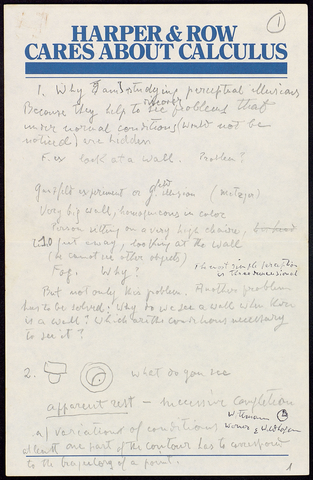 1
HARPER & ROW
CARES ABOUT CALCULUS
1. Why I am studying perceptual illusions
Because they help to discover problems that
under normal conditions (would not be
noticed) are hidden
F. ex look at a wall. Problem?
Ganzfeld experiment or illusion (Metzger)
Very big wall, homogeneous in color
Person sitting on a very high chair,
feet away, looking at the wall
(he cannot see other objects)
Fog. Why?
The most simple perception
is threedimensional
But not only this problem. Another problem
has to be solved: Why do we see a wall when there
is a wall? Which are the conditions necessary
to see it?
2. what do you see
apparent rest – successive completion
a) variations of conditions
at least one part of the contour has to correspond
to the trajectory of a point.
1